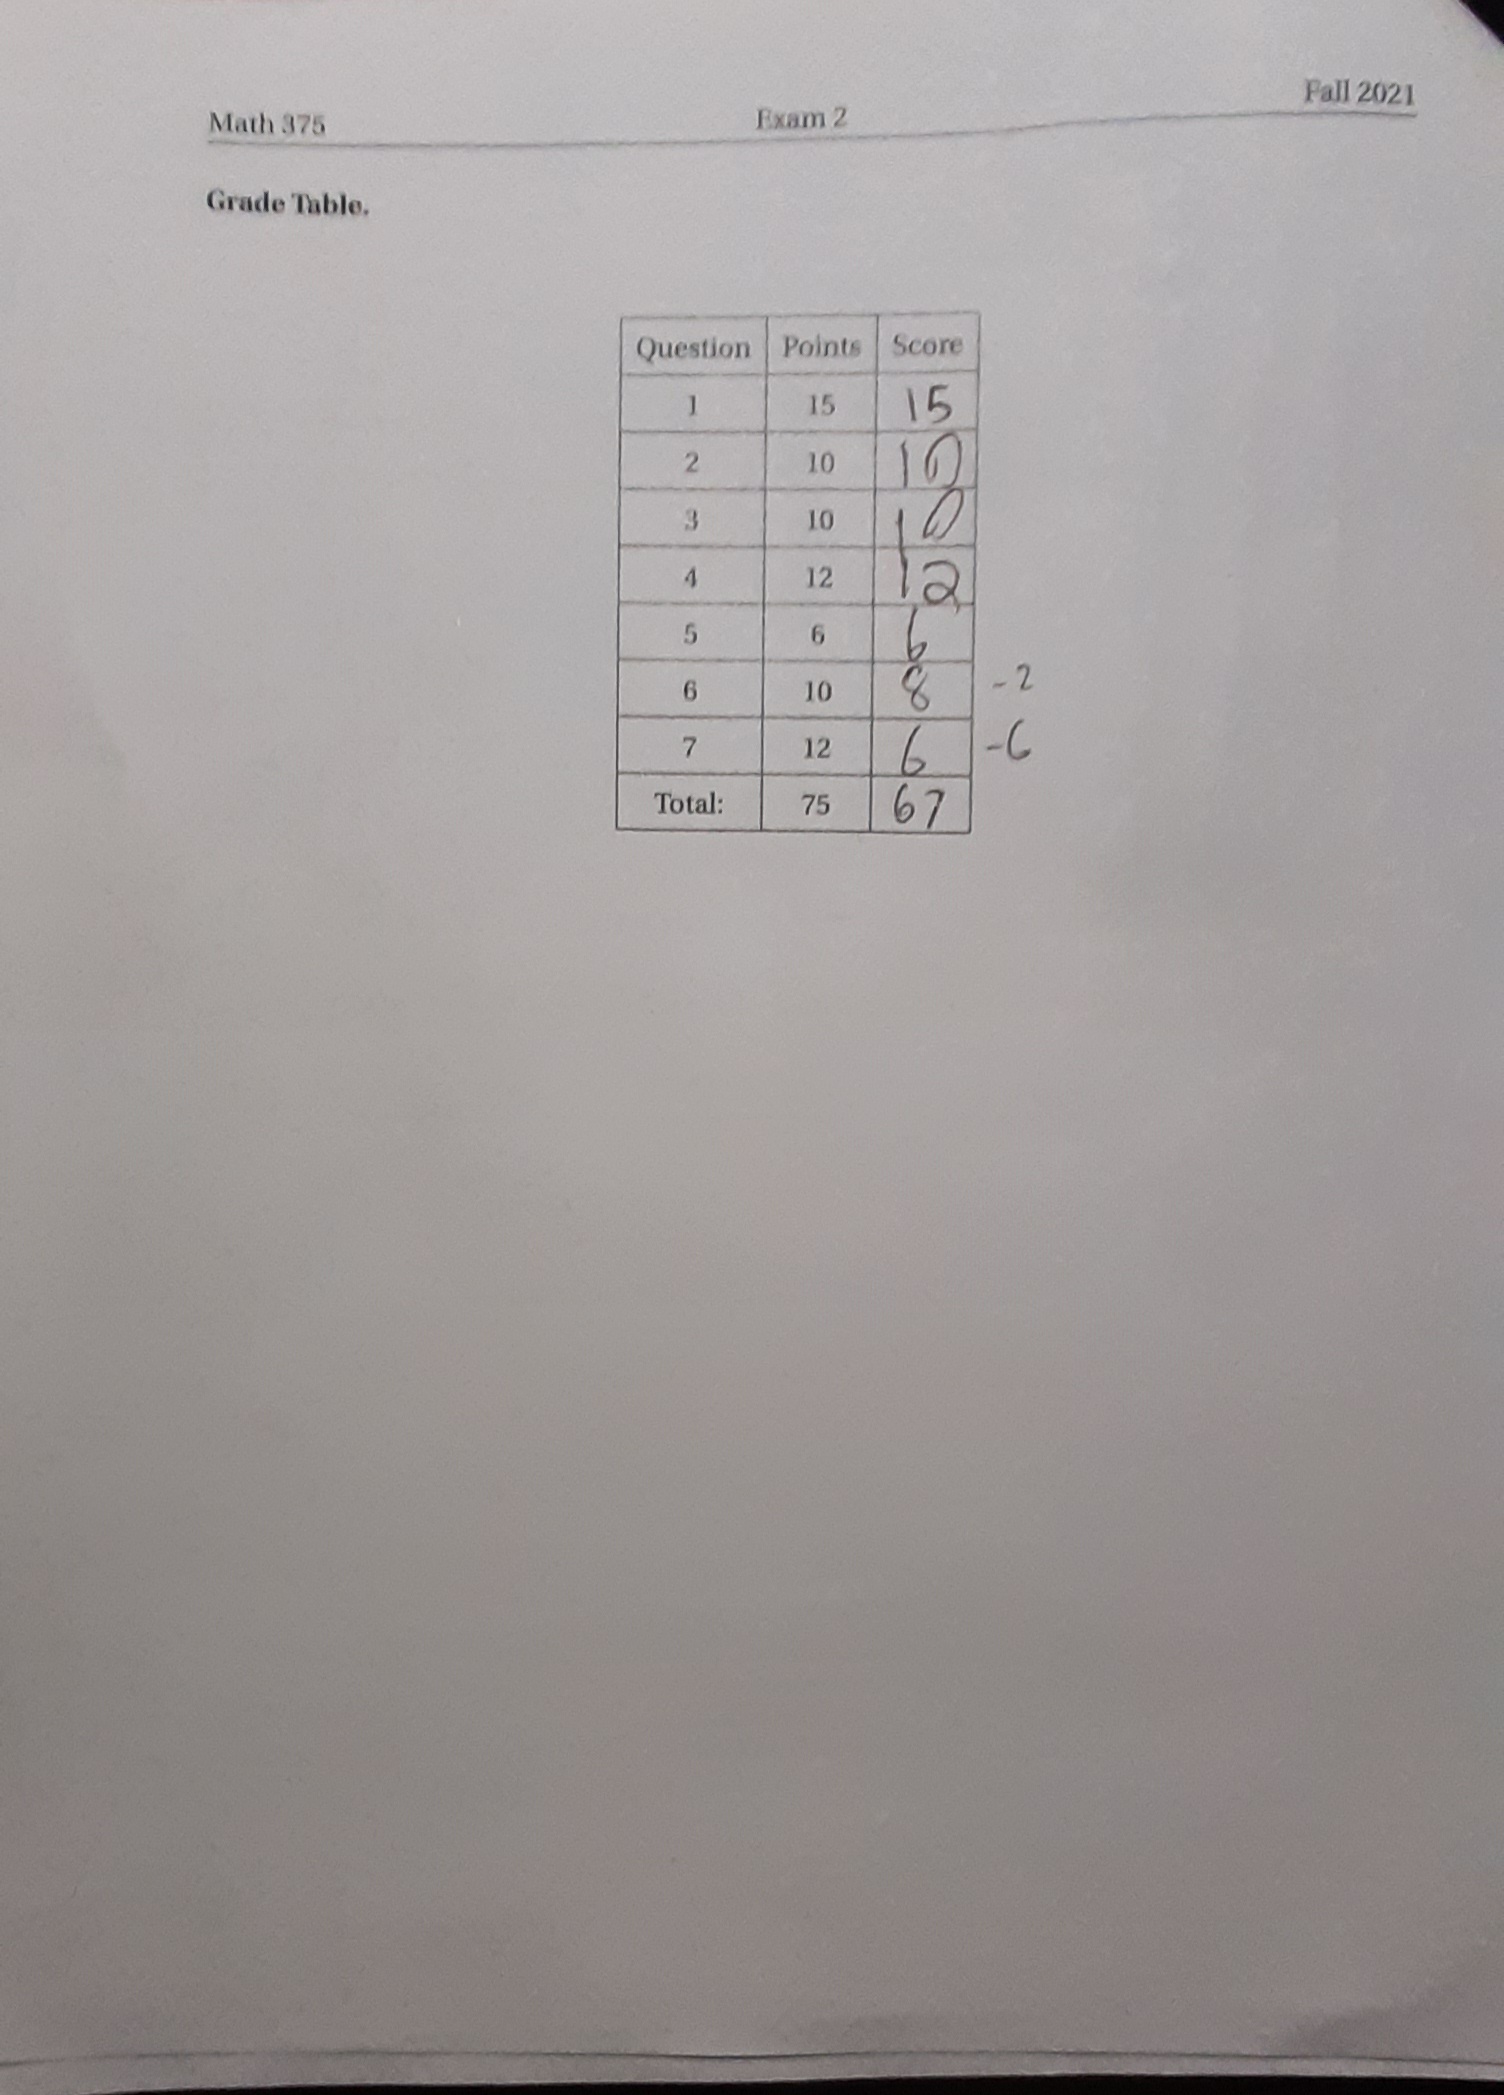 Math 375 Exam 2 Fall 2021
Grade Table.
Question Points Score
1 15 15
2 10 10
3 10 10
4 12 12
5 6 6
6 10 8 -2
7 12 6 -6
Total: 75 67